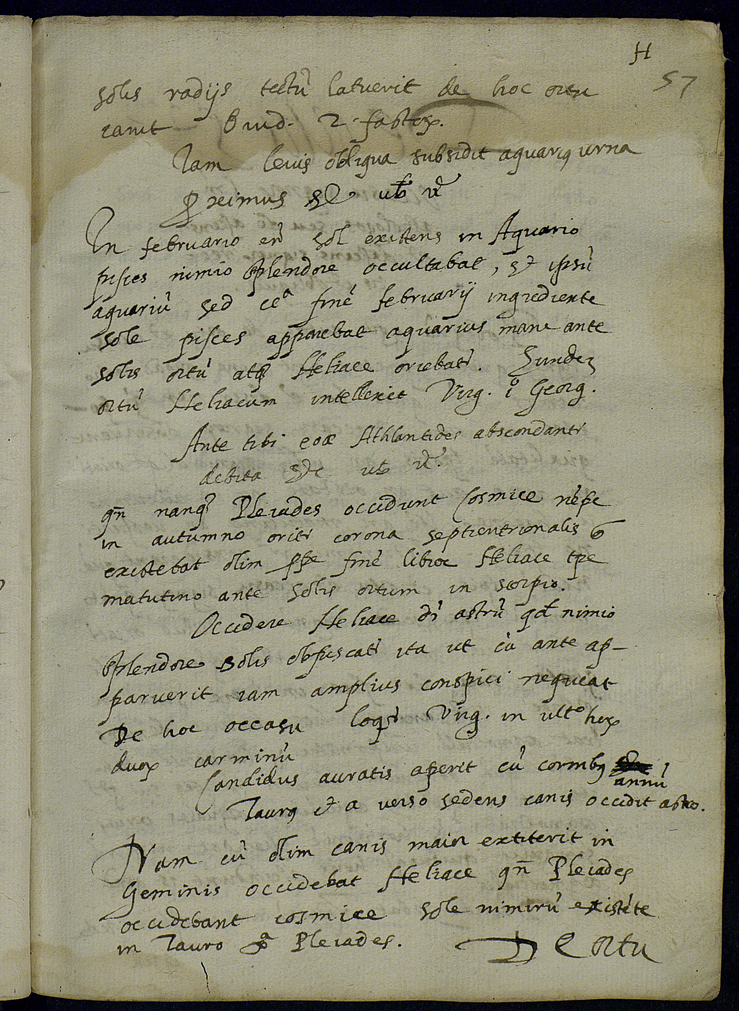 H
57
solis radijs tectũ latuerit de hoc ortu
canit Ovid. 2. fastoꝝ.
Iam levis obliqua subsidit aquariꝯ urna
Proximus &c ubi
In februario en̄ sol existens in Aquario
pisces nimio splendore occultabat, et ipsũ
aquariũ sed circa finẽ februarij ingrediente
sole pisces apparebat aquarius mane ante
solis ortũ atqꝫ Heliace oriebatr.
ortũ Heliacum intellexit Virg. i° Georg.
Ante tibi eoæ Athlantides abscondantr
debita &c ubi
qñ nanqꝫ Pleiades occidunt Cosmice nẽpe
in autumno oritr corona septentrionalis
existebat olim finẽ libræ Heliace tpe
matutino ante solis ortum in scorpio.
Occidere Heliace dr̄ astrũ qd̃ nimio
splendore solis obfuscatr ita ut cũ ante ap-
paruerit iam amplius conspici nequeat
De hoc occasu loqr̃ Virg. in ult° hoꝝ
duoꝝ carminũ
Candidus auratis aperit cũ cornibꝯ annũ
Taurꝯ et averso cedens canis occidit astro.
Nam cũ olim canis maior extiterit in
Geminis occidebat Heliace qñ Pleiades
occidebant cosmice sole nimirũ existẽte
in Tauro Pleiades.
De ortu